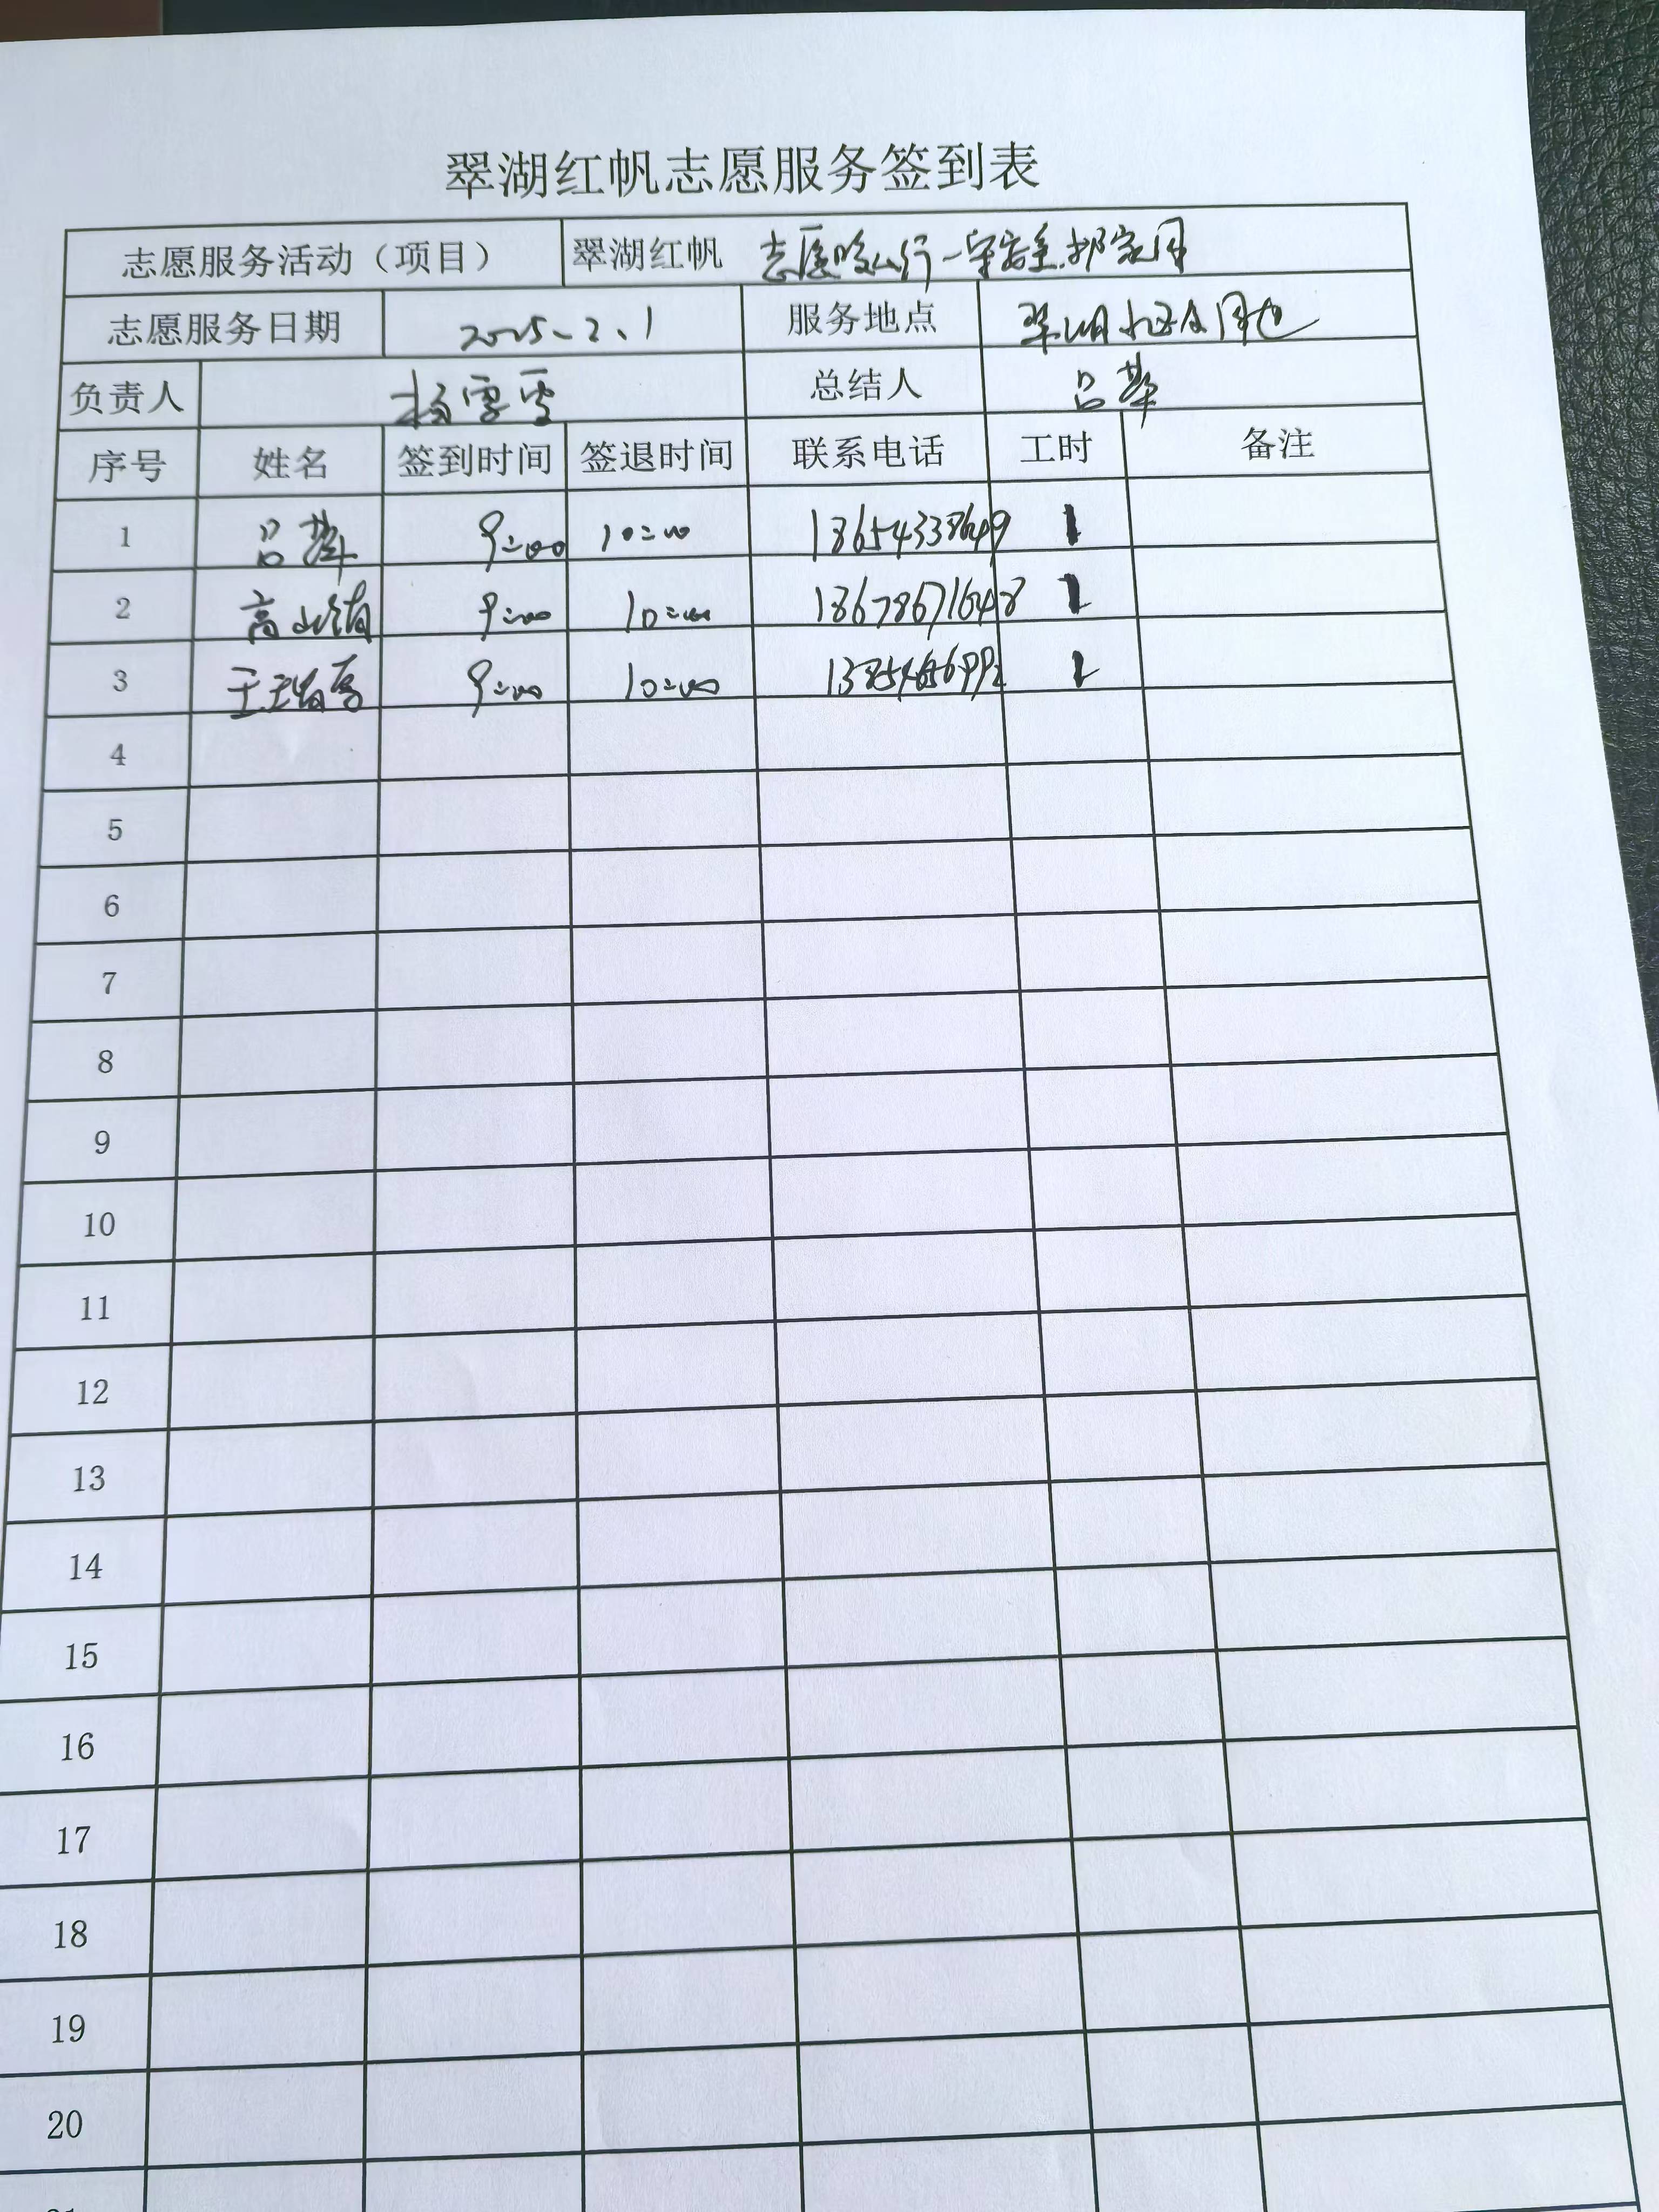 翠湖红帆志愿服务签到表
志愿服务活动（项目） 翠湖红帆 志愿 行一守安全
志愿服务日期 2025-2、1 服务地点 翠湖社区
负责人 杨雪雪 总结人 吕苹
序号 姓名 签到时间 签退时间 联系电话 工时 备注
1 吕苹 9:00 10:00 18654338649 1
2 高 9:00 10:00 18678671648 1
3 9:00 10:00 1
4
5
6
7
8
9
10
11
12
13
14
15
16
17
18
19
20